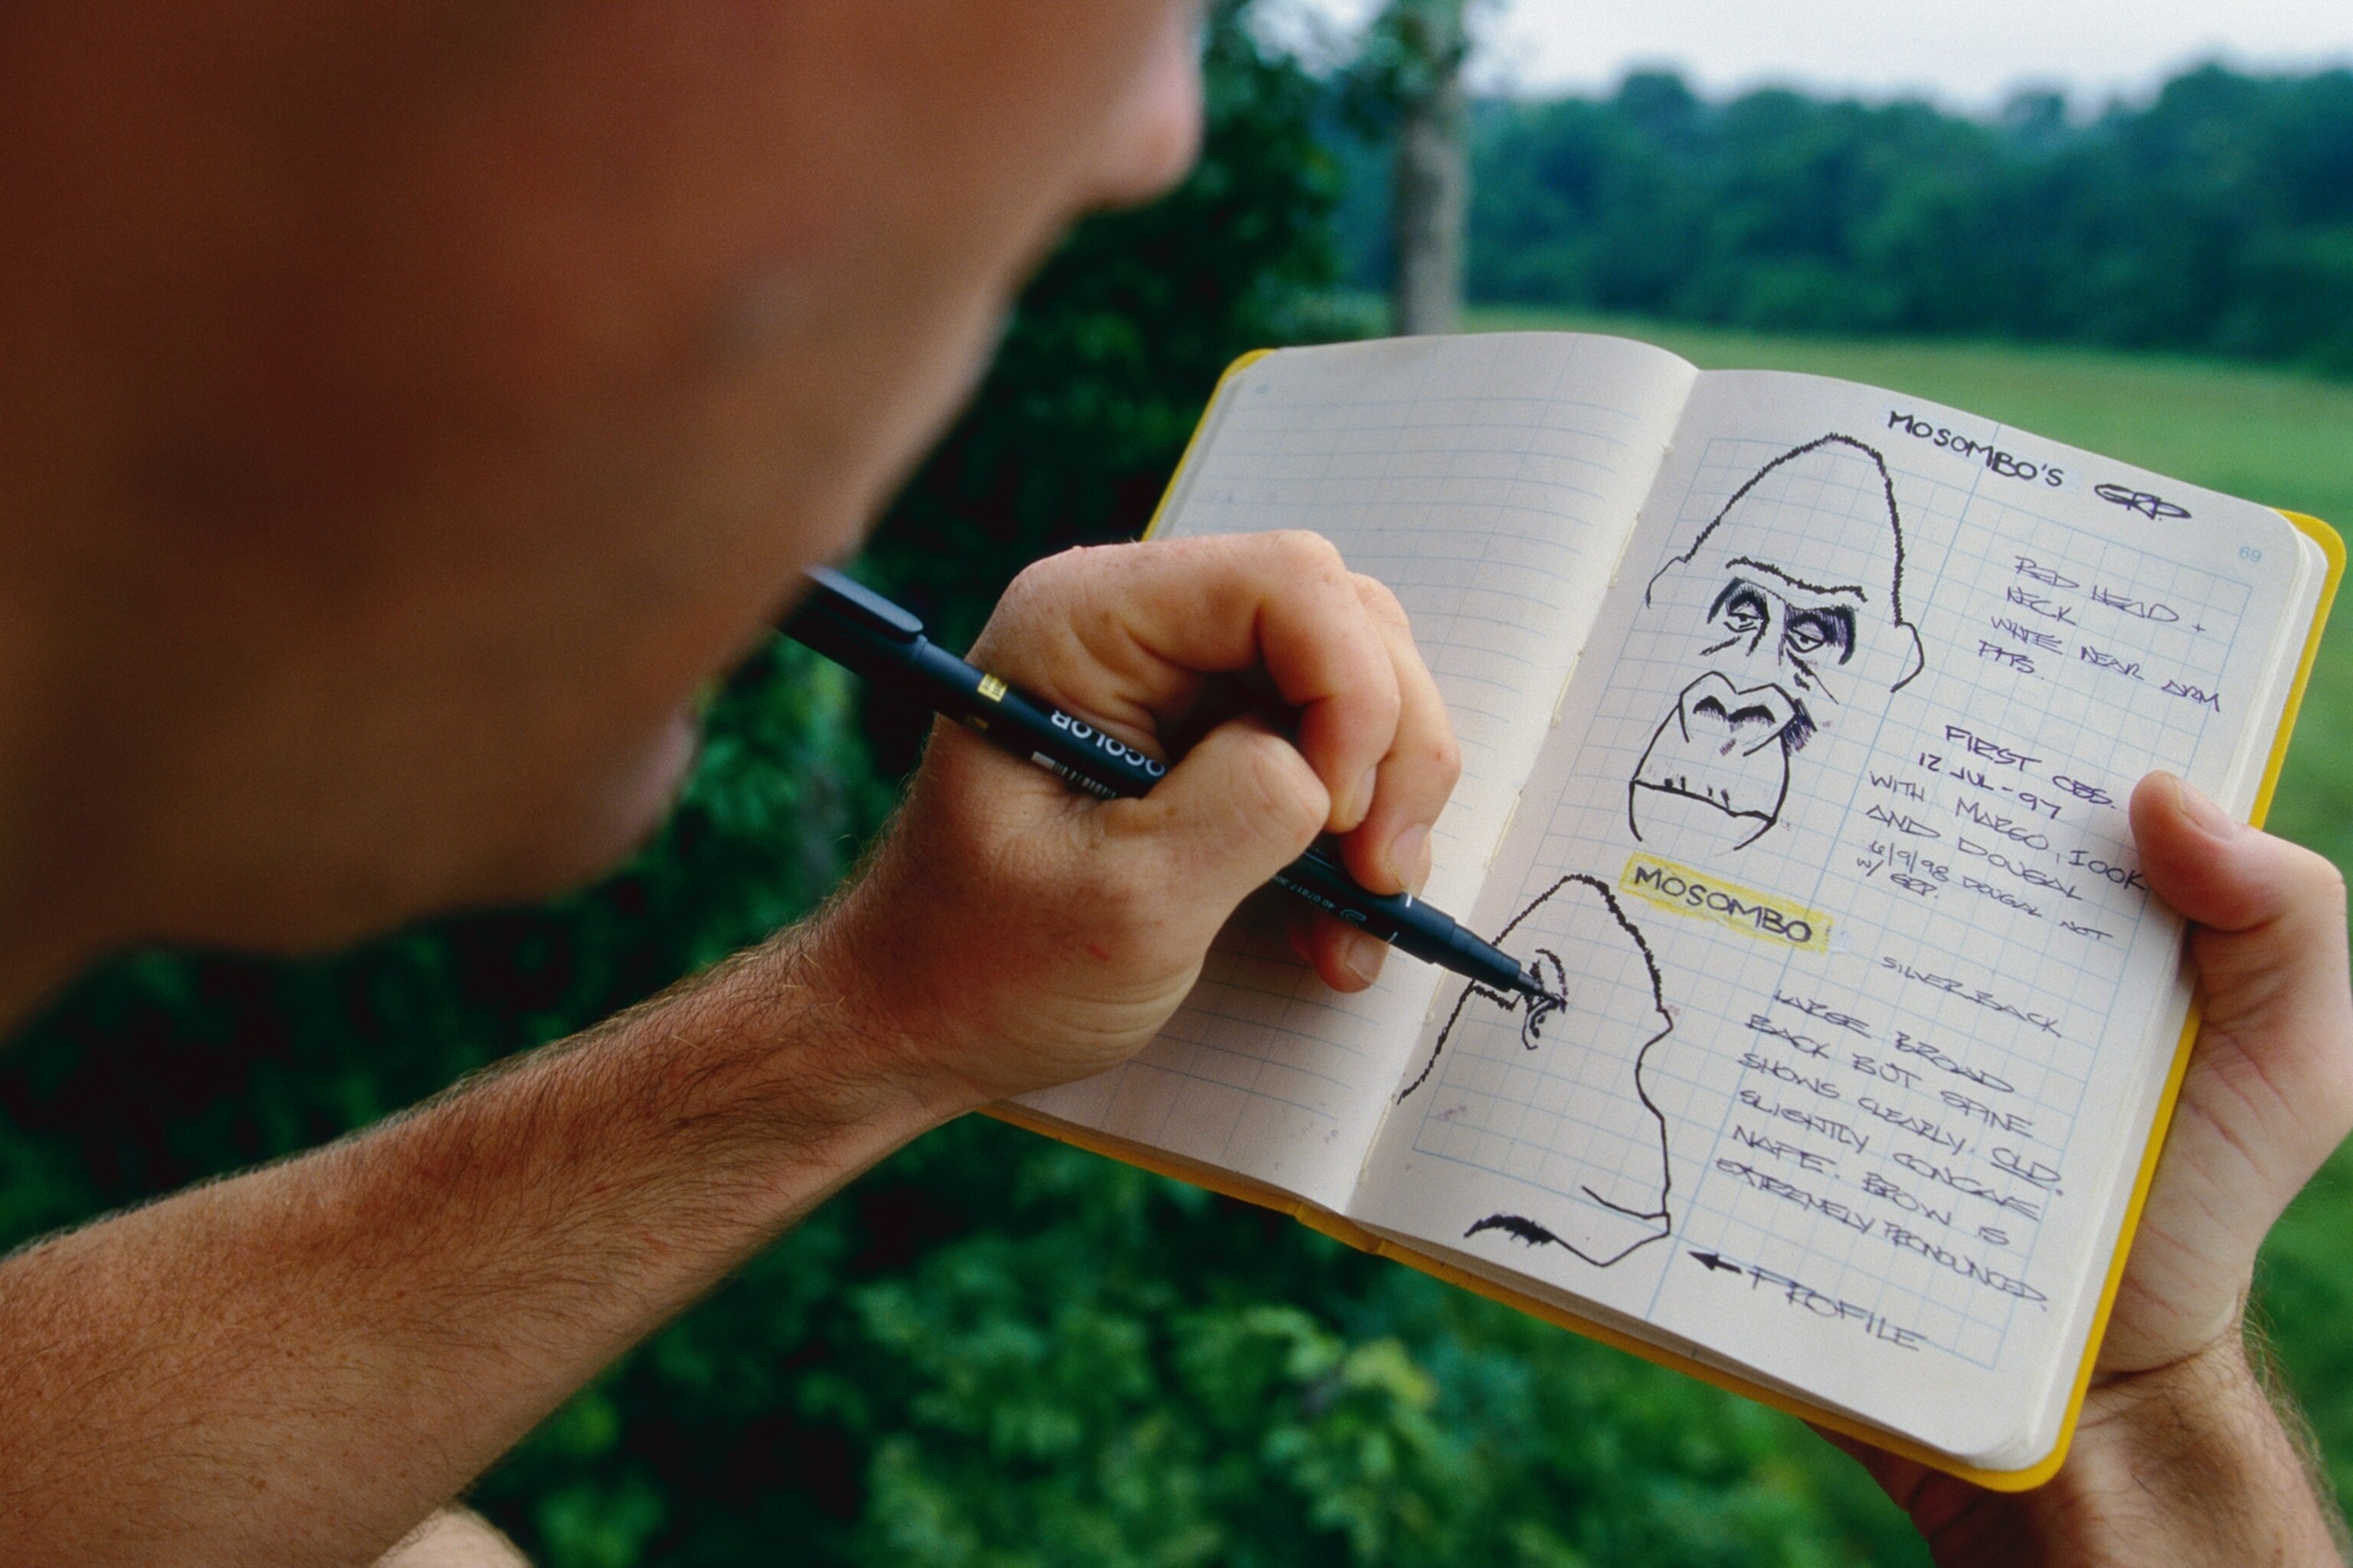 MOSOMBO'S GRP.
69
RED HEAD +
NECK
WHITE NEAR ARM
PITS.
FIRST OBS.
12 JUL-97
WITH MARGO, 100K
AND DOUGAL
6/9/98 DOUGAL NOT
W/ GRP.
MOSOMBO
SILVERBACK
LARGE BROAD
BACK BUT SPINE
SHOWS CLEARLY. OLD.
SLIGHTLY CONCAVE
NAPE. BROW IS
EXTREMELY PRONOUNCED.
← PROFILE
OCOLOR